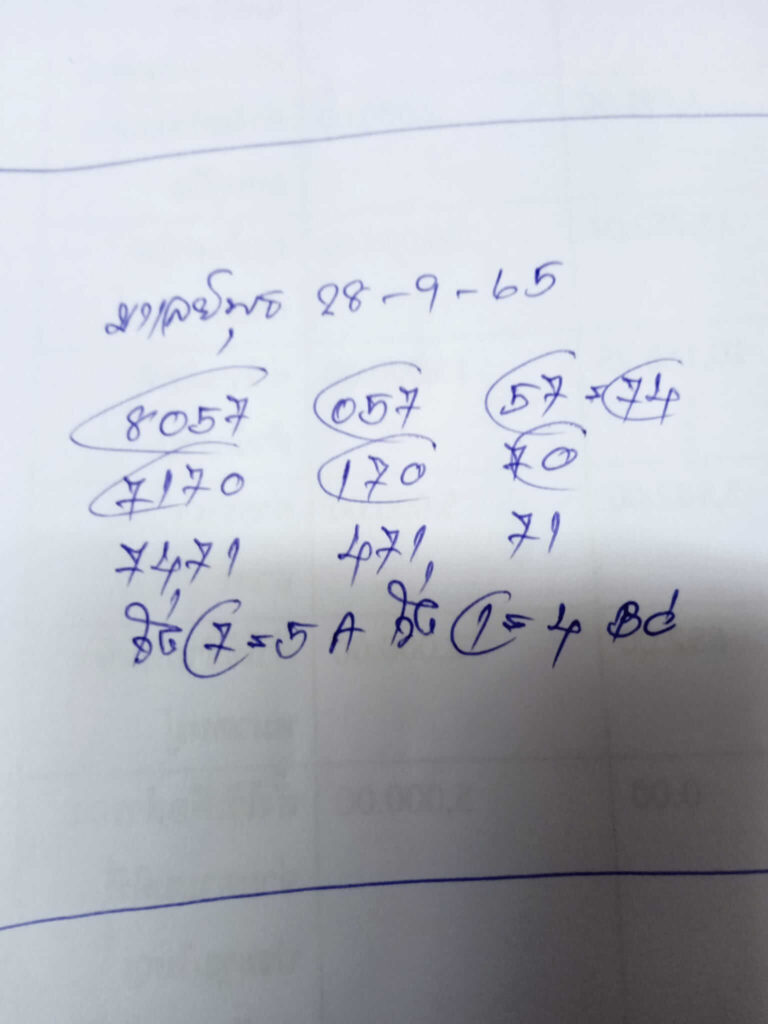 มาเลย์พุธ 28-9-65
8057 057 57=74
7170 170 70
7471 471, 71
7=5 A 1=4 BC